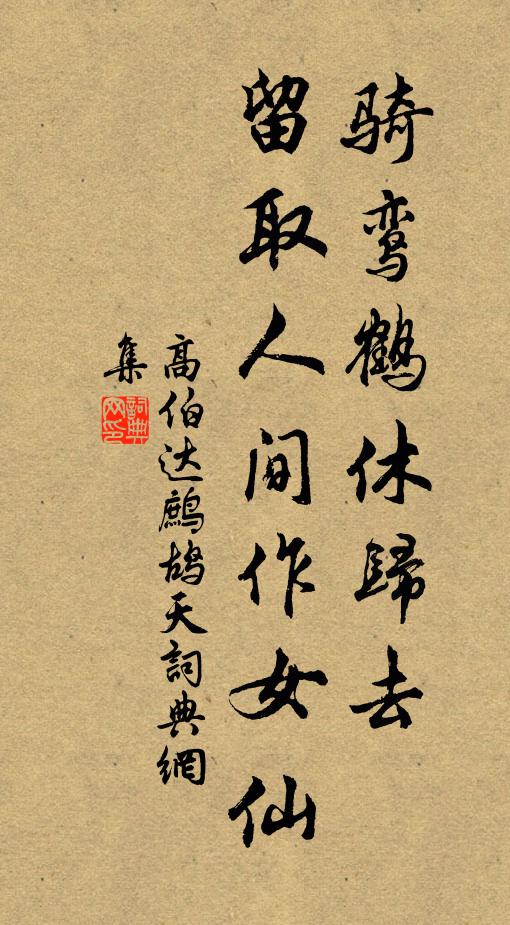 骑鸾鹤休歸去
留取人间作女仙
高伯达鹧鸪天詞典網
集
詞典
网印